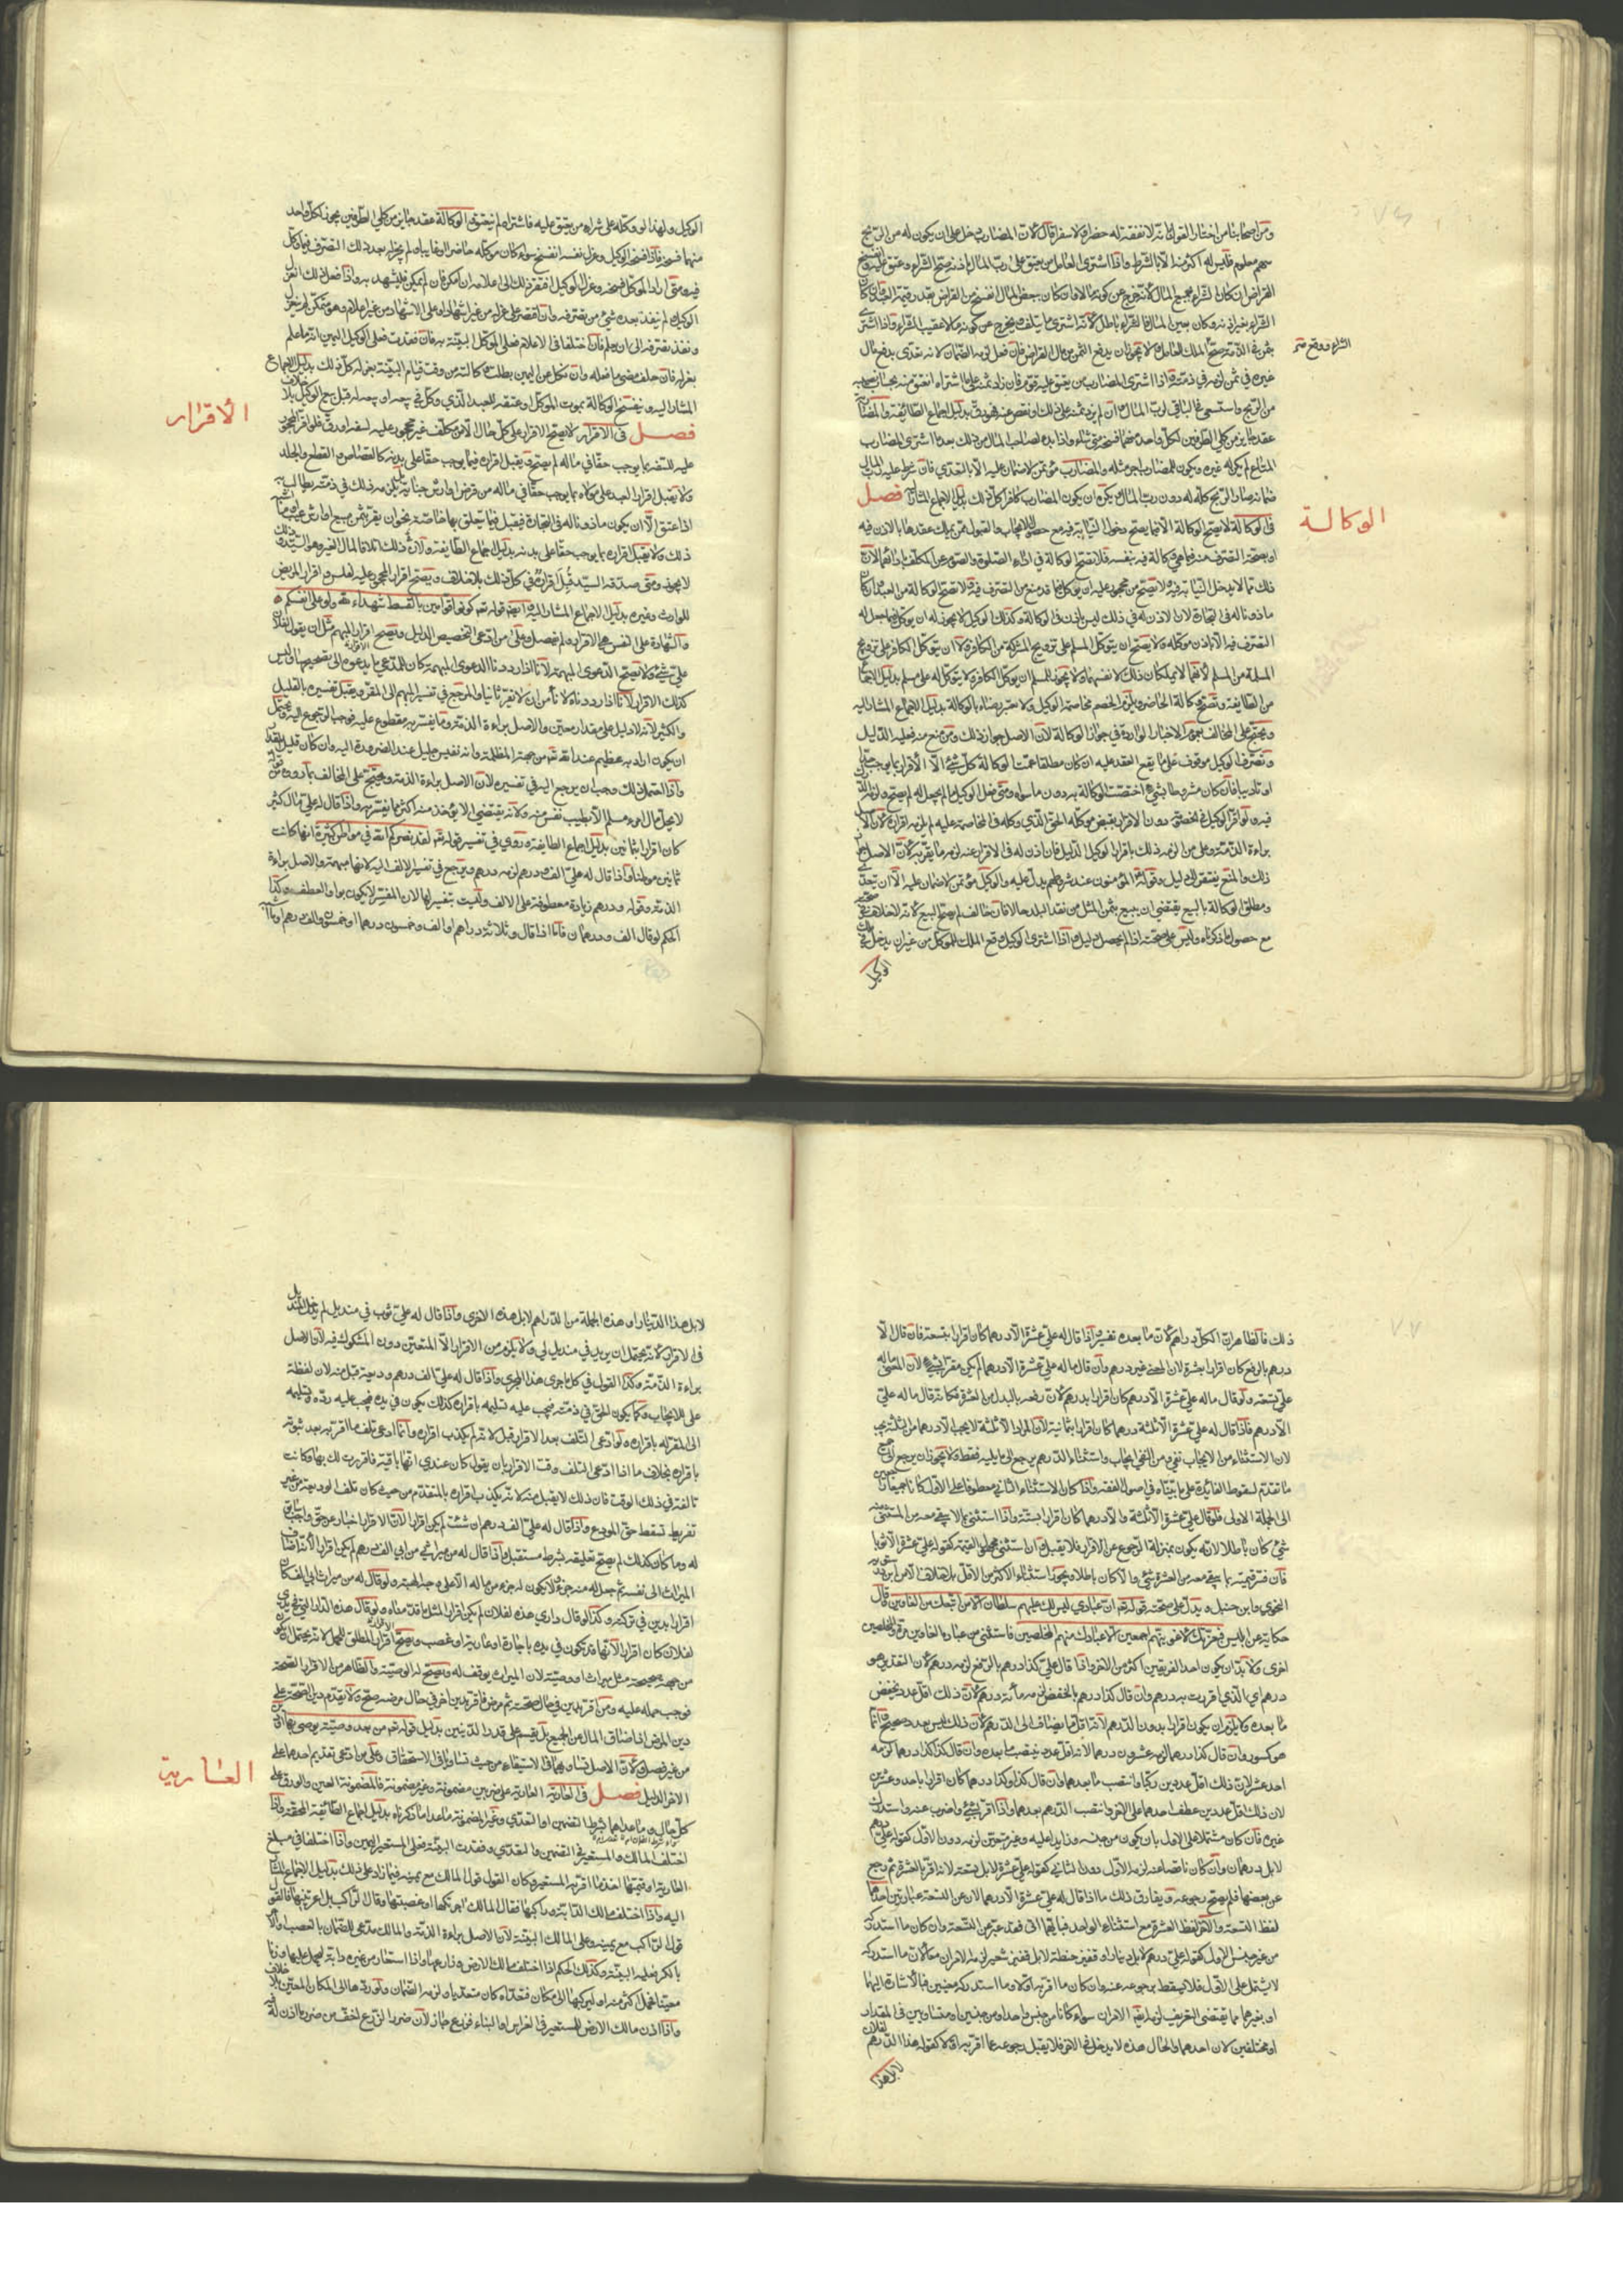 ومن اصحابنا من اختار القول بانه لا نفقة له حضرا ولا سفرا قال لان المضارب دخل على ان يكون له من الربح
سهم معلوم فليس له اكثر منه الا بالشرط واذا اشترى العامل من يعتق على رب المال باذنه صح الشراء وعتق عليه وانفسخ
القراض ان كان الشراء بجميع المال لانه خرج عن كونه مالا وان كان ببعض المال انفسخ من القراض بقدر قيمة العبد وان كان
الشراء بغير اذنه وكان بعين المال فالشراء باطل لانه اشترى ما يتلف ويخرج عن كونه مالا عقيب الشراء واذا اشترى
الشراء ووقع
بثمن في الذمة صح الملك للعامل ولا يجوز ان يدفع الثمن من مال القراض فان فعل لزمه الضمان لانه تعدى بدفع مال
غيره في ثمن لزمه في ذمته واذا اشترى المضارب من يعتق عليه قوم فان زاد ثمنه على ما اشتراه انعتق منه بحساب نصيبه
من الربح واستسعى في الباقي لرب المال وان لم يزد ثمنه على ذلك او نقص عنه فهو رق بدليل اجماع الطائفة والمضاربة
عقد جايز من كلي الطرفين لكل واحد منهما فسخه متى شاء واذا بدا لصاحب المال من ذلك بعد ما اشترى المضارب
المتاع لم يكن له غيره ويكون للمضارب اجر مثله والمضارب مؤتمن لا ضمان عليه الا بالتعدي فان شرط عليه المال
ضمانه صار الربح كله له دون رب المال ويكره ان يكون المضارب كافرا كل ذلك بدليل الاجماع المشار اليه فصل
الوكالة
في الوكالة لا يصح الوكالة الا فيما يصح دخول النيابة فيه مع حصول الايجاب والقبول ممن يملك عقدها بالاذن فيه
او بصحة التصرف منه فيما هي وكالة فيه بنفسه فلا تصح الوكالة في اداء الصلوة والصوم عن المكلف بادائهما لان
ذلك مما لا يدخل النيابة فيه ولا تصح من محجور عليه ان يوكل فيما قد منع من التصرف فيه ولا تصح الوكالة من العبد وان كان
ماذونا له في التجارة لان الاذن له في ذلك ليس باذن في الوكالة وكذلك الوكيل لا يجوز له ان يوكل فيما جعل له
التصرف فيه الا باذن موكله ولا يصح ان يتوكل المسلم على تزويج المشركة من الكافر ولا ان يتوكل الكافر على تزويج
المسلمة من المسلم لانهما لا يملكان ذلك لانفسهما ولا يجوز للمسلم ان يوكل الكافر ولا يتوكل له على مسلم بدليل اجماع
من الطائفة وتصح وكالة الحاضر ويلزم الخصم مخاصمة الوكيل ولا يعتبر رضاه بالوكالة بدليل الاجماع المشار اليه
ويحتج على المخالف بعموم الاخبار الواردة في جواز الوكالة لان الاصل جواز ذلك ومن منع منه فعليه الدليل
وتصرف الوكيل موقوف على ما يقع العقد عليه ان كان مطلقا عمت الوكالة كل شيء الا الاقرار بما يوجب حدا
او تاديبا وان كان مشروطا بشيء اختصت الوكالة به دون ما سواه ومتى فعل الوكيل ما لم يجعل له لم يصح ولزمه الدرك
فيه ولو اقر الوكيل في خصومة دون الاقرار بقبض موكله الحق الذي وكله في المخاصمة عليه لم يلزمه اقراره لان الاصل
براءة الذمة وعلى من الزمه ذلك باقرار الوكيل الدليل فان اذن له في الاقرار عنه لزمه ما يقر به لان الاصل جواز
ذلك والمنع يفتقر الى دليل وقوله المؤمنون عند شروطهم يدل عليه والوكيل مؤتمن لا ضمان عليه الا ان يتعدى
ومطلق الوكالة بالبيع يقتضي ان يبيع بثمن المثل من نقد البلد حالا فان خالف لم يصح البيع لانه لا خلاف في صحته
مع حصول ما ذكرناه وليس على صحته اذا لم يحصل دليل واذا اشترى الوكيل وقع الملك للموكل من غير ان يدخل في ملك
الوكيل
الوكيل ولهذا لو وكله على شراء من يعتق عليه فاشتراه لم ينعتق والوكالة عقد جايز من كلي الطرفين يجوز لكل واحد
منهما فسخه فاذا فسخ الوكيل وعزل نفسه انفسخ سواء كان موكله حاضرا او غايبا ولم يجز له بعد ذلك التصرف فيما وكل
فيه ومتى اراد الموكل فسخه وعزل الوكيل افتقر ذلك الى اعلامه ان امكن فان لم يمكن فليشهد به واذا فعل ذلك انعزل
الوكيل ولم ينفذ بعده شيء من تصرفه وان اقتصر على عزله من غير اشهاد او على الاشهاد من غير اعلام وهو متمكن لم ينعزل
ونفذ تصرفه الى ان يعلم فان اختلفا في الاعلام فعلى الموكل البينة به فان فقدت فعلى الوكيل اليمين انه ما علم
بعزله فان حلف مضى ما فعله وان نكل عن اليمين بطلت وكالته من وقت قيام البينة بعزله كل ذلك بدليل الاجماع
المشار اليه وينفسخ الوكالة بموت الموكل او عتقه للعبد الذي وكل في بيعه او بيعه له قبل بيع الوكيل بلا خلاف
الاقرار
فصل في الاقرار لا يصح الاقرار على كل حال الا من مكلف غير محجور عليه لسفه او رق فلو اقر المحجور
عليه للسفه بما يوجب حقا في ماله لم يصح ويقبل اقراره فيما يوجب حقا على بدنه كالقصاص والقطع والجلد
ولا يقبل اقرار العبد على مولاه بما يوجب حقا في ماله من قرض او ارش جناية بل يلزمه ذلك في ذمته يطالب به
اذا عتق الا ان يكون ماذونا له في التجارة فيقبل فيما يتعلق بها خاصة نحو ان يقر بثمن مبيع او ارش عيب او ما اشبه
ذلك ولا يقبل اقراره بما يوجب حقا على بدنه بدليل اجماع الطايفة ولان في ذلك اتلافا لمال الغير وهو السيد وذلك
لا يجوز ومتى صدقه السيد قبل اقراره في كل ذلك بلا خلاف ويصح اقرار المحجور عليه لفلس واقرار المريض
للوارث وغيره بدليل الاجماع المشار اليه وايضا قوله تعالى كونوا قوامين بالقسط شهداء لله ولو على انفسكم
والشهادة على النفس هي الاقرار ولم يفصل وعلى من ادعى التخصيص الدليل ويصح اقرار المبهم مثل ان يقول لفلان
علي شيء ولا تصح الدعوى المبهمة لانا اذا رددنا الدعوى المبهمة كان للمدعي ما يدعوه الى تصحيحها وليس
كذلك الاقرار لانا اذا رددناه لا نأمن ان لا يقر ثانيا والمرجع في تفسير المبهم الى المقر ويقبل تفسيره بالقليل
والكثير لانه لا دليل على مقدار معين والاصل براءة الذمة وما يفسر به مقطوع عليه فوجب الرجوع اليه ويحتمل
ان يكون اراد به عظيم عند الله تعالى من جهة المظلمة وانه نفيس جليل عند الضرورة اليه وان كان قليل المقدار
واذا احتمل ذلك وجب ان يرجع اليه في تفسيره لان الاصل براءة الذمة ويحتج على المخالف بما رووه من قوله
لا يحل مال امرء مسلم الا بطيب نفس منه ولانه يقتضي الا يؤخذ منه اكثر مما يفسر به واذا قال له علي مال كثير
كان اقرارا بثمانين بدليل اجماع الطايفة وروي في تفسير قوله تعالى لقد نصركم الله في مواطن كثيرة انها كانت
ثمانين موطنا واذا قال له علي الف ودرهم لزمه درهم ويرجع في تفسير الالف اليه لانها مبهمة والاصل براءة
الذمة وقوله ودرهم زيادة معطوفة على الالف وليست بتفسير لها لان المفسر لا يكون بواو العطف وكذا
الحكم لو قال الف ودرهمان فاما اذا قال وثلاثة دراهم او الف وخمسون درهما او خمسون والف درهم وما اشبه
٧٧
ذلك فالظاهر ان الكل دراهم لان ما بعده تفسير واذا قال له علي عشرة الا درهما كان اقرارا بتسعة فان قال الا
درهم بالرفع كان اقرارا بعشرة لان المعنى غير درهم وان قال ما له علي عشرة الا درهما لم يكن مقرا بشيء لان المعنى ما له
علي تسعة ولو قال ما له علي عشرة الا درهم كان اقرارا بدرهم لان رفعه بالبدل من العشرة فكانه قال ما له علي
الا درهم فاذا قال له علي عشرة الا ثلاثة الا درهما كان اقرارا بثمانية لان المراد الا ثلثة لا يجب الا درهما من الثلثة يجب
لان الاستثناء من الايجاب نفي ومن النفي ايجاب واستثناء الدرهم يرجع الى ما يليه فقط ولا يجوز ان يرجع الى جميع
ما تقدم لسقوط الفائدة على ما بيناه في اصول الفقه واذا كان الاستثناء الثاني معطوفا على الاول كانا جميعا راجعين
الى الجملة الاولى فلو قال علي عشرة الا ثلثة والا درهما كان اقرارا بستة واذا استثنى بما لا يبقى معه من المستثنى منه
شيء كان باطلا لانه يكون بمنزلة الرجوع عن الاقرار فلا يقبل وان استثنى بمجهول القيمة كقوله علي عشرة الا ثوبا
فان فسر قيمته بما يبقى معه من العشرة شيء والا كان باطلا ويجوز استثناء الاكثر من الاقل بلا خلاف الا من ابن درستويه
النحوي وابن حنبل ويدل على صحته قوله تعالى ان عبادي ليس لك عليهم سلطان الا من اتبعك من الغاوين وقال
حكاية عن ابليس فبعزتك لاغوينهم اجمعين الا عبادك منهم المخلصين فاستثنى من عباده الغاوين مرة والمخلصين
اخرى ولا بد ان يكون احد الفريقين اكثر من الاخر واذا قال علي كذا درهم بالرفع لزمه درهم لان التقدير هو
درهم اي الذي اقررت به درهم وان قال كذا درهم بالخفض لزمه مائة درهم لان ذلك اقل عدد يخفض
ما بعده ولا يلزم ان يكون اقرارا بدون الدرهم لانه اقل ما يضاف الى الدرهم لان ذلك ليس بعدد صحيح وانما
هو كسور وان قال كذا درهما لزمه عشرون درهما لانه اقل عدد ينتصب ما بعده وان قال كذا كذا درهما لزمه
احد عشر لان ذلك اقل عددين ركبا وانتصب ما بعدهما وان قال كذا وكذا درهما كان اقرارا باحد وعشرين
لان ذلك اقل عددين عطف احدهما على الاخر وانتصب الدرهم بعدهما واذا اقر بشيء واضرب عنه واستدرك
غيره فان كان مشتملا على الاول بان يكون من جنسه وزايدا عليه وغير متعين لزمه دون الاول كقوله علي درهم
لا بل درهمان وان كان ناقصا عنه لزمه الاول دون الثاني كقوله علي عشرة لا بل تسعة لانه اقر بالعشرة ثم رجع
عن بعضها فلم يصح رجوعه ويفارق ذلك ما اذا قال له علي عشرة الا درهما لان عن التسعة عبارتين احدهما
لفظ التسعة والاخرى لفظ العشرة مع استثناء الواحد فبايهما اتى فقد عبر عن التسعة وان كان ما استدركه
من غير جنس الاول كقوله علي درهم لا بل دينار او قفيز حنطة لا بل قفيز شعير لزمه الامران معا لان ما استدركه
لا يشتمل على الاول فلا يسقط برجوعه عنه وان كان ما اقر به اولا وما استدركه معينين بالاشارة اليهما
او بغيرها مما يقتضي التعريف لزمه ايضا الامران سواء كانا من جنس واحد او من جنسين او متساويين في المقدار
او مختلفين لان احدهما والحال هذه لا يدخل في الاخر فلا يقبل رجوعه عما اقر به اولا كقوله هذا الدرهم لفلان
لا بل هذا
لا بل هذا الدينار او هذه الجملة من الدراهم لا بل هذه الاخرى واذا قال له علي ثوب في منديل لم يدخل المنديل
في الاقرار لانه يحتمل ان يريد في منديل لي ولا يلزم من الاقرار الا المتعين دون المشكوك فيه لان الاصل
براءة الذمة وكذا القول في كل ما جرى هذا المجرى واذا قال له علي الف درهم وديعة قبل منه لان لفظة
علي للايجاب وكما يكون الحق في ذمته فيجب عليه تسليمه باقراره كذلك يكون في يده فيجب عليه رده وتسليمه
الى المقر له باقراره ولو ادعى التلف بعد الاقرار قبل لانه لم يكذب اقراره وانما ادعى تلف ما اقر به بعد ثبوته
باقراره بخلاف ما اذا ادعى التلف وقت الاقرار بان يقول كان عندي انها باقية فاقررت لك بها وكانت
تالفة في ذلك الوقت فان ذلك لا يقبل منه لانه يكذب اقراره بالمتقدم من حيث كان تلف الوديعة من غير
تفريط تسقط حق المودع واذا قال له علي الف درهم ان شئت لم يكن اقرارا لان الاقرار اخبار عن حق واجب سابق
له وما كان كذلك لم يصح تعليقه بشرط مستقبل واذا قال له من ميراثي من ابي الف درهم لم يكن اقرارا لانه اضاف
الميراث الى نفسه ثم جعل له منه جزءا ولا يكون له جزء من ماله الا على وجه الهبة ولو قال له من ميراث ابي الف كان
اقرارا بدين في تركته وكذا لو قال داري هذه لفلان لم يكن اقرارا لمثل ما قدمناه ولو قال هذه الدار التي في يدي
لفلان كان اقرارا لانها قد تكون في يده باجارة او عارية او غصب ويصح الاقرار المطلق للحمل لانه يحتمل ان يكون
من جهة صحيحة مثل ميراث او وصية لان الميراث يوقف له ويصح له الوصية والظاهر من الاقرار الصحة
فوجب حمله عليه ومن اقر بدين في حال صحته ثم مرض فاقر بدين اخر في حال مرضه صح ولا يقدم دين الصحة على
دين المرض اذا ضاق المال عن الجميع بل يقسم على قدر الدينين بدليل قوله تعالى من بعد وصية يوصي بها او دين
من غير فصل ولان الاصل تساويهما في الاستيفاء من حيث تساويا في الاستحقاق وعلى من ادعى تقديم احدهما على
العارية
الاخر الدليل فصل في العارية العارية على ضربين مضمونة وغير مضمونة فالمضمونة العين والورق على
كل حال وما عداهما بشرط التضمين او التعدي وغير المضمونة ما عدا ما ذكرناه بدليل اجماع الطائفة المحقة واذا
اختلف المالك والمستعير في التضمين والتعدي وفقدت البينة فعلى المستعير اليمين واذا اختلفا في مبلغ
العارية او قيمتها اخذ ما اقر به المستعير وكان القول قول المالك مع يمينه فيما زاد على ذلك بدليل الاجماع المشار
اليه واذا اختلف مالك الدابة وراكبها فقال المالك اجرتكها او غصبتها وقال الراكب بل اعرتنيها فالقول
قول الراكب مع يمينه وعلى المالك البينة لان الاصل براءة الذمة والمالك مدعي للضمان بالغصب او
بالكرى فعليه البينة وكذلك الحكم اذا اختلف مالك الارض وزارعها واذا استعار من غيره دابة ليحمل عليها وزنا
معينا فحمل اكثر منه او ليركبها الى مكان فتعداه كان متعديا ولزمه الضمان ولو ردها الى المكان المعين بلا خلاف
واذا اذن مالك الارض للمستعير في الغراس او البناء فزرع جاز لان ضرر الزرع اخف من ضرر ما اذن له فيه